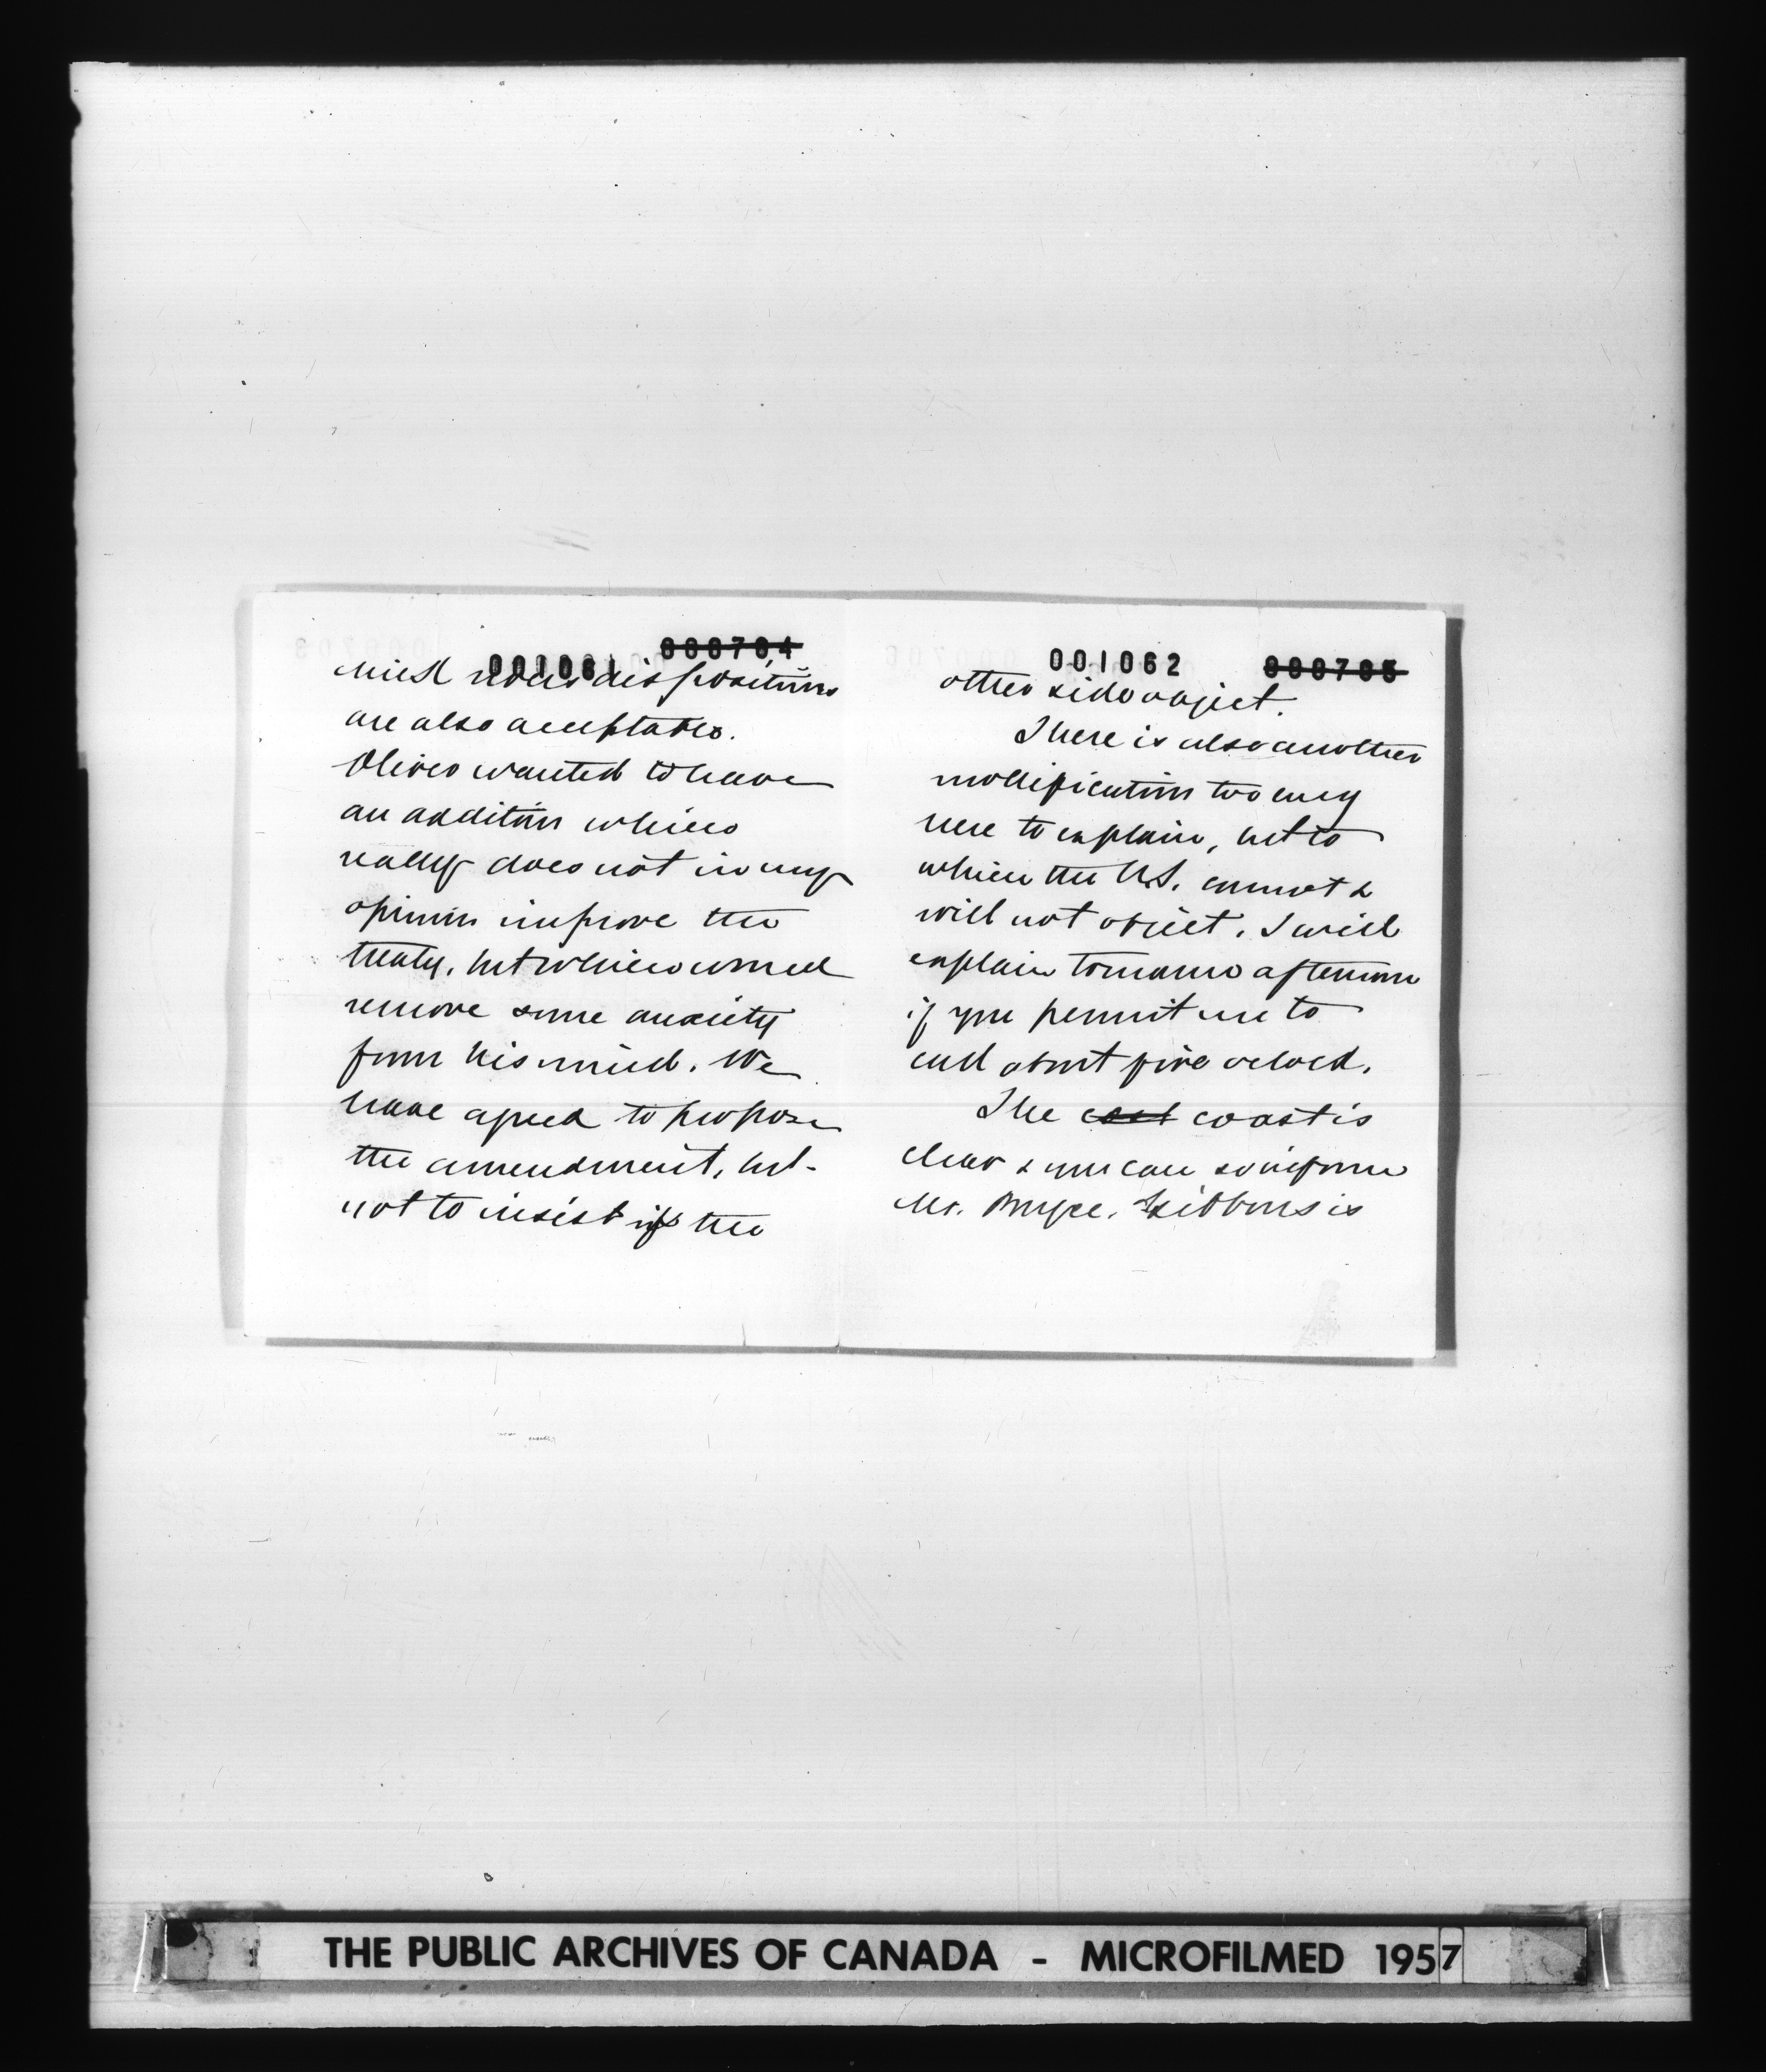 000704
001061
dispositions
are also acceptable.
Oliver wanted to have
an addition which
really does not in my
opinion improve the
treaty, but which would
remove some anxiety
from his mind. We
have agreed to propose
the amendment, but
not to insist if the
001062 000705
other side object.
There is also another
modification too
here to explain, but to
which the U.S. cannot &
will not object. I will
explain tomorrow afternoon
if you permit me to
call about five oclock.
The coast is
clear & you can so inform
Mr. Bryce. Gibbons is
THE PUBLIC ARCHIVES OF CANADA - MICROFILMED 1957